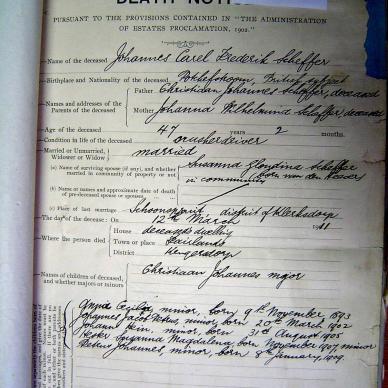 DEATH NOTICE
PURSUANT TO THE PROVISIONS CONTAINED IN "THE ADMINISTRATION
OF ESTATES PROCLAMATION, 1902."
Name of the deceased Johannes Carel Frederik Scheffer
Birthplace and Nationality of the deceased Potchefstroom, British subject
Names and addresses of the Parents of the deceased
Father Christiaan Johannes Scheffer, deceased
Mother Johanna Wilhelmina Scheffer, deceased
Age of the deceased 47 years 2 months.
Condition in life of the deceased
Married or Unmarried, Widower or Widow married
(a) Name of surviving spouse (if any), and whether married in community of property or not Susanna
in community born van den
(b) Name or names and approximate date of death of pre-deceased spouse or spouses
(c) Place of last marriage Schoonspruit district of Klerksdorp
The day of the decease: On 12th March 1911
Where the person died
House deceased's dwelling
Town or place
District
Names of children of deceased, and whether majors or minors
Christiaan Johannes major
minor, born 9th November 1893
Johannes Jacob minor, born 20th March 1902
Johann Hein, minor, born 31st August 1905
Hester Susanna Magdalena, born November 1907, minor
Johannes, minor, born 8th January, 1909.